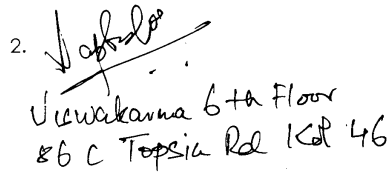 2.
Viswakarma 6th Floor
86 C Topsia Rd Kol 46